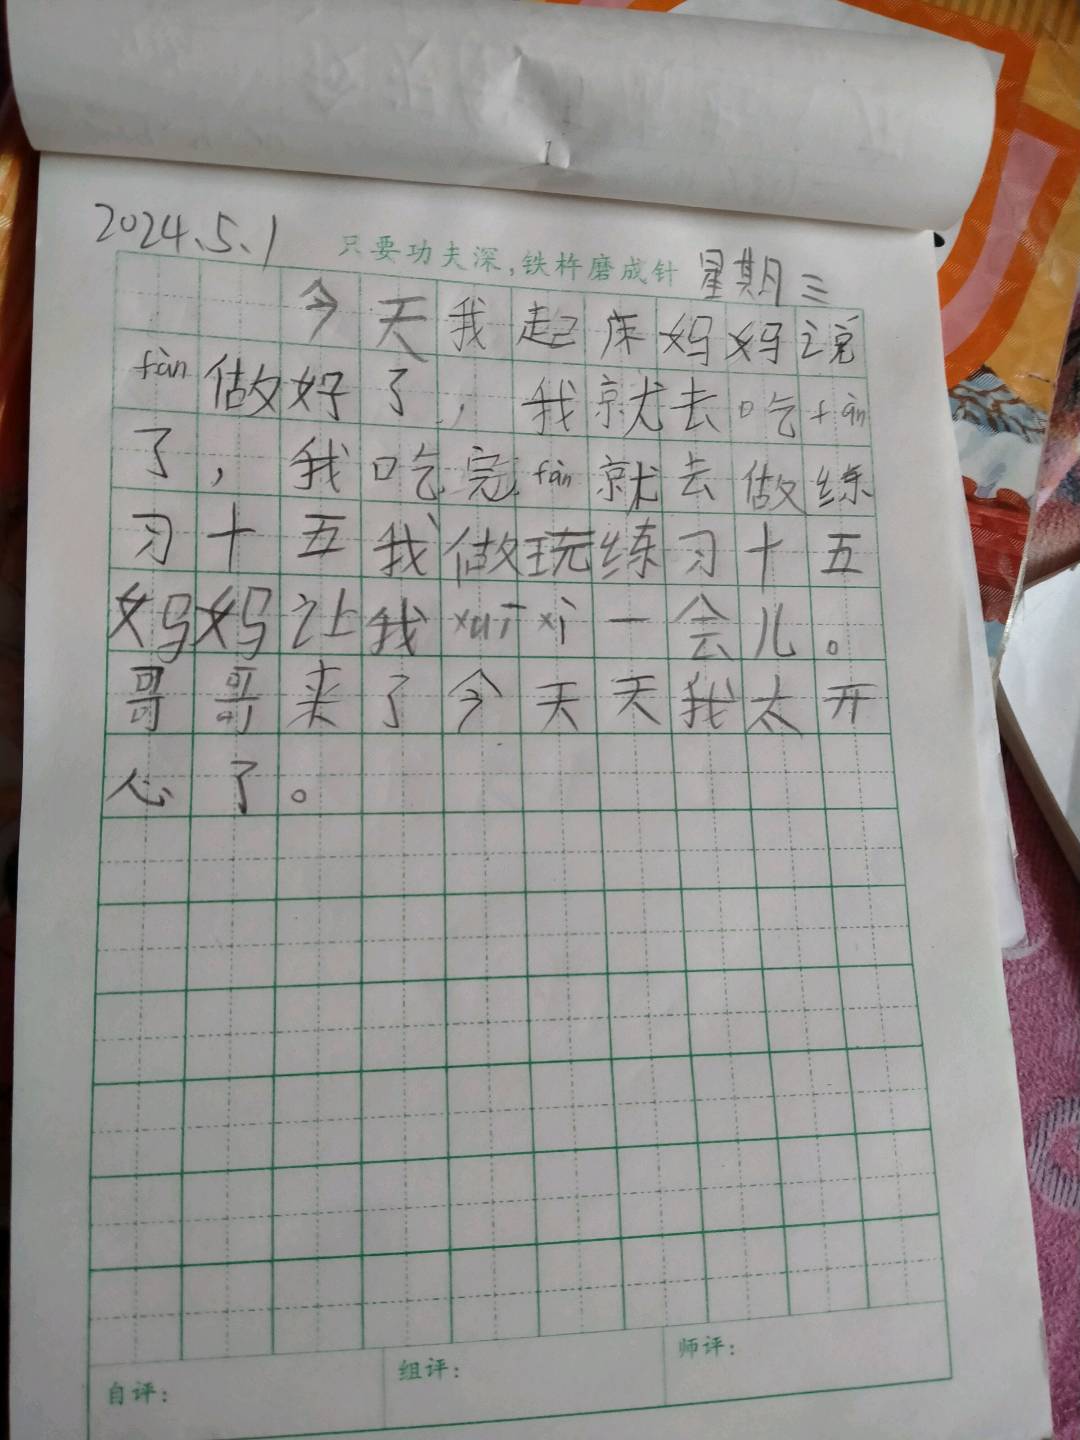 2024.5.1
只要功夫深,铁杵磨成针 星期三
今天我起床妈妈说
fàn做好了，我就去吃fàn
了，我吃完fàn就去做练
习十五我做玩练习十五
妈妈让我xuīxi一会儿。
哥哥来了今天天我太开
心了。
自评：
组评：
师评：